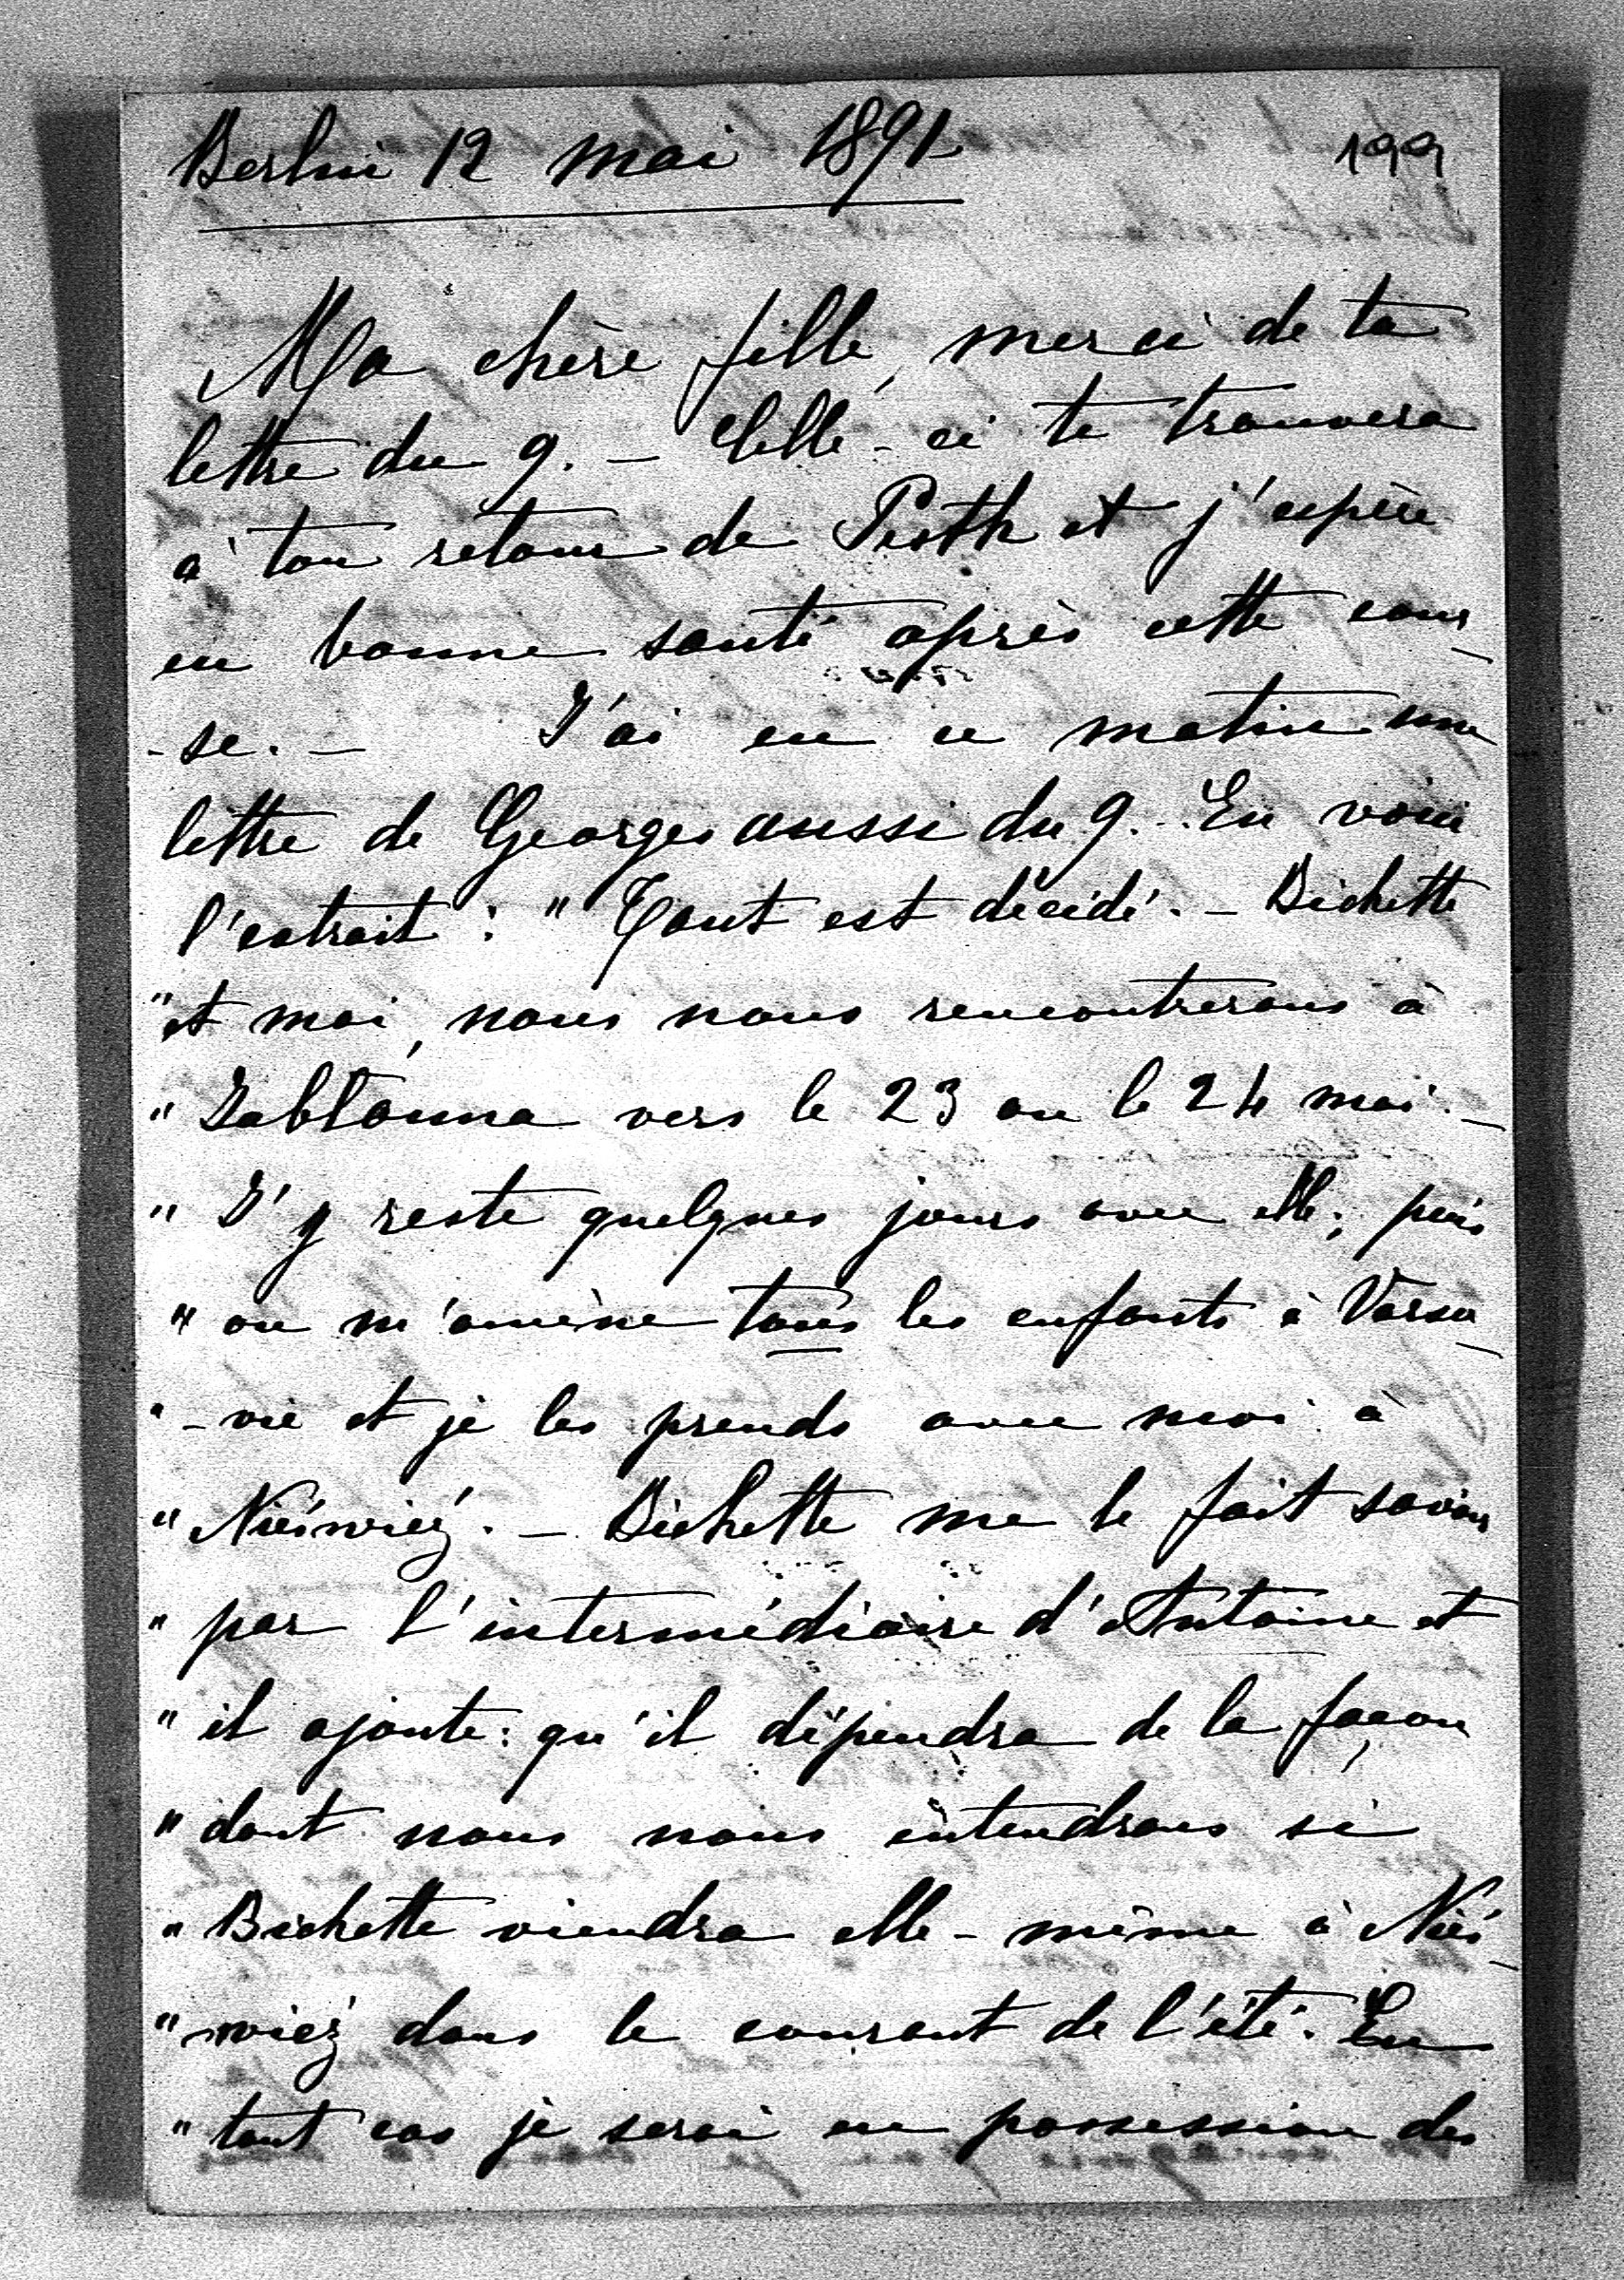 Berlin 12 mai 1891
199
Ma chère fille, merci de ta
lettre du 9. – Celle-ci te trouvera
à ton retour de Pesth et j'espère
en bonne santé après cette cour-
-se. – J'ai eu ce matin une
lettre de Georges aussi du 9. En voici
l'extrait : " Tout est décidé. – Bichette
" et moi, nous nous rencontrerons à
" Jabłonna vers le 23 ou le 24 mai. –
" J'y reste quelques jours avec elle; puis
" on m'amène tous les enfants à Varso-
" -vie et je les prends avec moi à
" Nieśwież. – Bichette me le fait savoir
" par l'intermédiaire d'Antoine et
" il ajoute: qu'il dépendra de la façon
" dont nous nous entendrons si
" Bichette viendra elle-même à Nieś-
" -wież dans le courant de l'été. En
" tout cas je serai en possession des